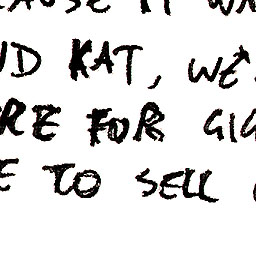 CAUSE IT WA
ND KAT, WE
RE FOR GIG
E TO SELL